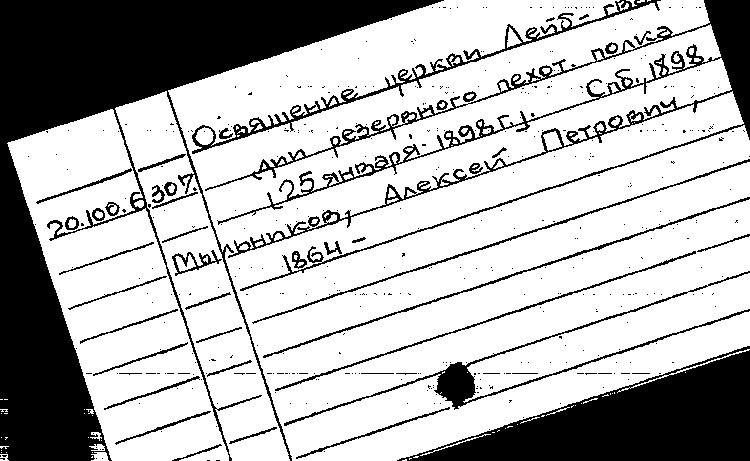 Освящение церкви Лейб-гвар
дии резервного пехот. полка
[25 января 1898 г.]. Спб., 1898.
20.100.6.307.
Мыльников, Алексей Петрович,
1864 –